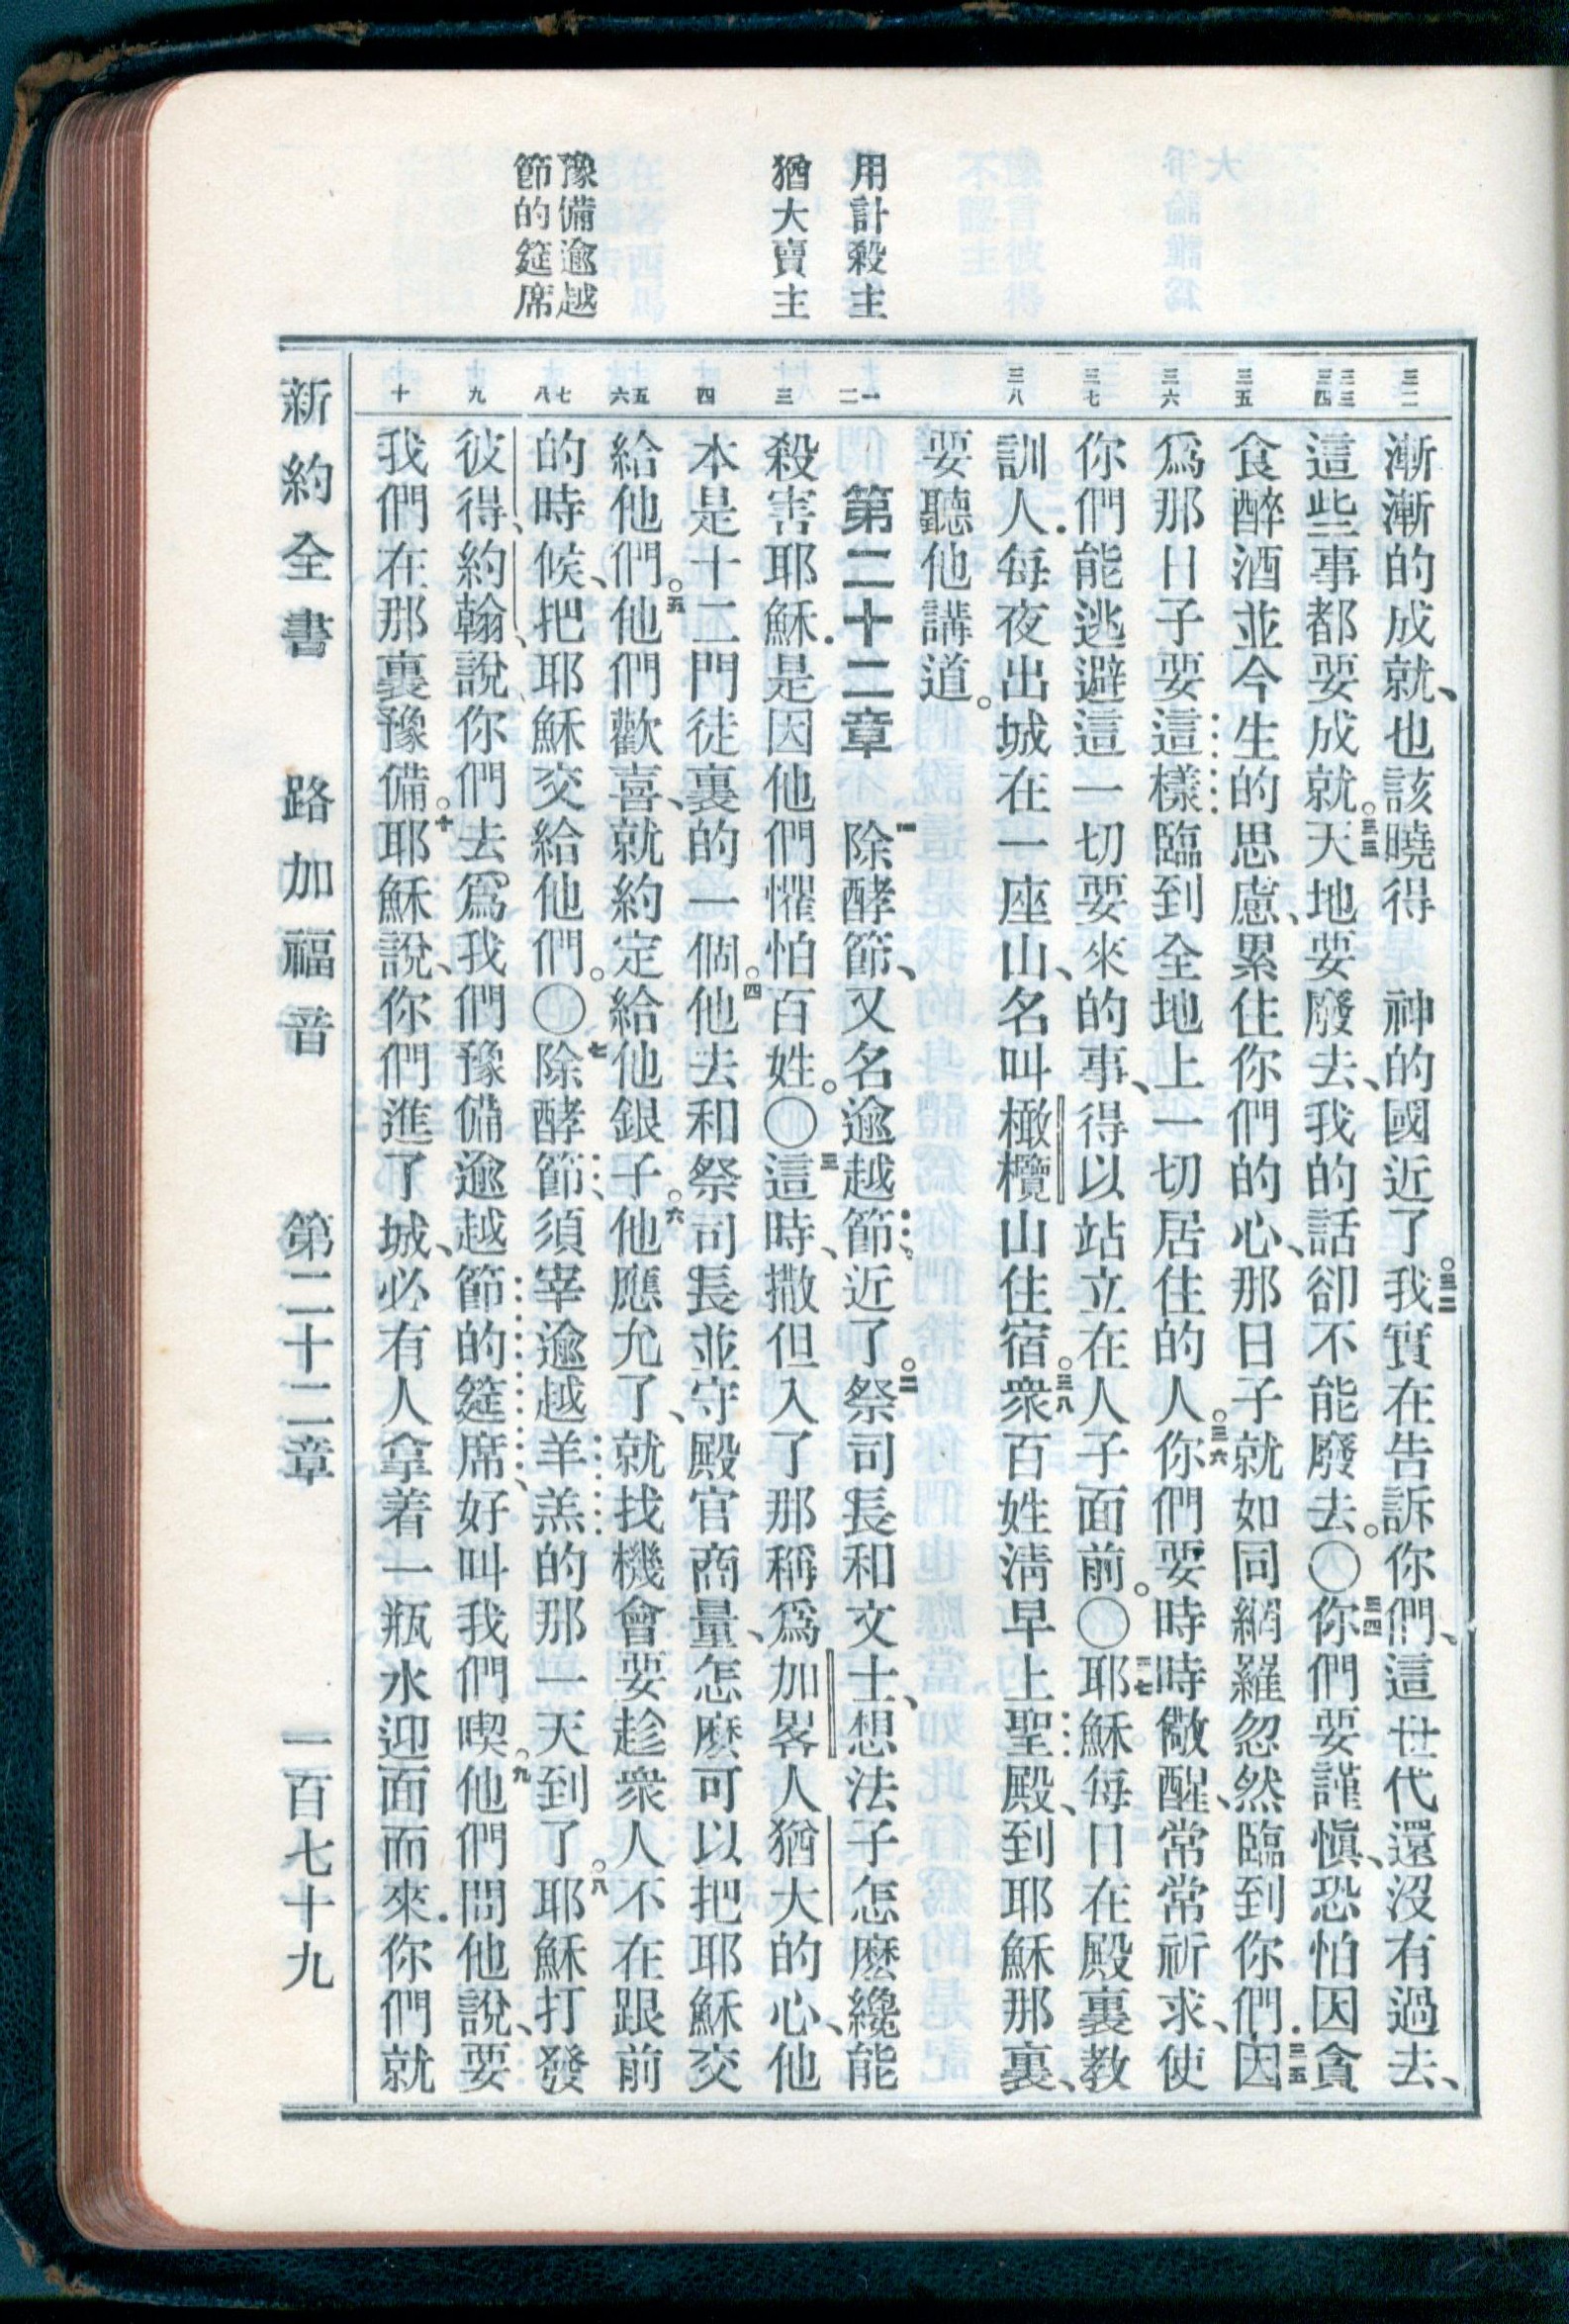 用計殺主
猶大賣主
豫備逾越
節的筵席
三二
三三
三四
三五
三六
三七
三八
一
二
三
四
五
六
七
八
九
十
漸漸的成就、也該曉得　神的國近了。三二我實在告訴你們、這世代還沒有過去、
這些事都要成就。三三天地要廢去、我的話卻不能廢去。〇三四你們要謹愼、恐怕因貪
食醉酒並今生的思慮、累住你們的心、那日子就如同網羅忽然臨到你們．三五因
爲那日子要這樣臨到全地上一切居住的人。三六你們要時時儆醒、常常祈求、使
你們能逃避這一切要來的事、得以站立在人子面前。〇三七耶穌每日在殿裏教
訓人．每夜出城在一座山、名叫橄欖山住宿。三八衆百姓淸早上聖殿、到耶穌那裏、
要聽他講道。
第二十二章　一除酵節、又名逾越節、近了。二祭司長和文士、想法子怎麽纔能
殺害耶穌．是因他們懼怕百姓。〇三這時、撒但入了那稱爲加畧人猶大的心、他
本是十二門徒裏的一個。四他去和祭司長並守殿官商量、怎麽可以把耶穌交
給他們。五他們歡喜、就約定給他銀子。六他應允了、就找機會要趁衆人不在跟前
的時候、把耶穌交給他們。〇七除酵節、須宰逾越羊羔的那一天到了。八耶穌打發
彼得、約翰、說、你們去爲我們豫備逾越節的筵席、好叫我們喫。九他們問他說、要
我們在那裏豫備。十耶穌說、你們進了城、必有人拿着一瓶水迎面而來．你們就
新約全書　路加福音　第二十二章　一百七十九